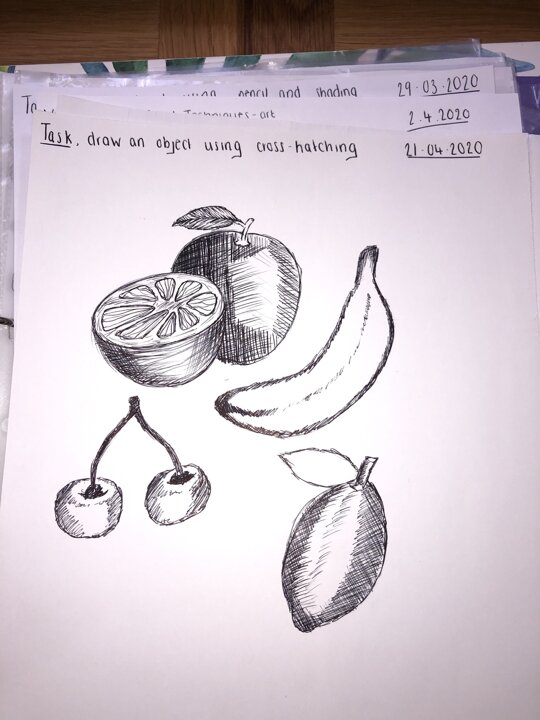 pencil and shading 29.03.2020
Techniques-art 2.4.2020
Task, draw an object using cross-hatching 21.04.2020